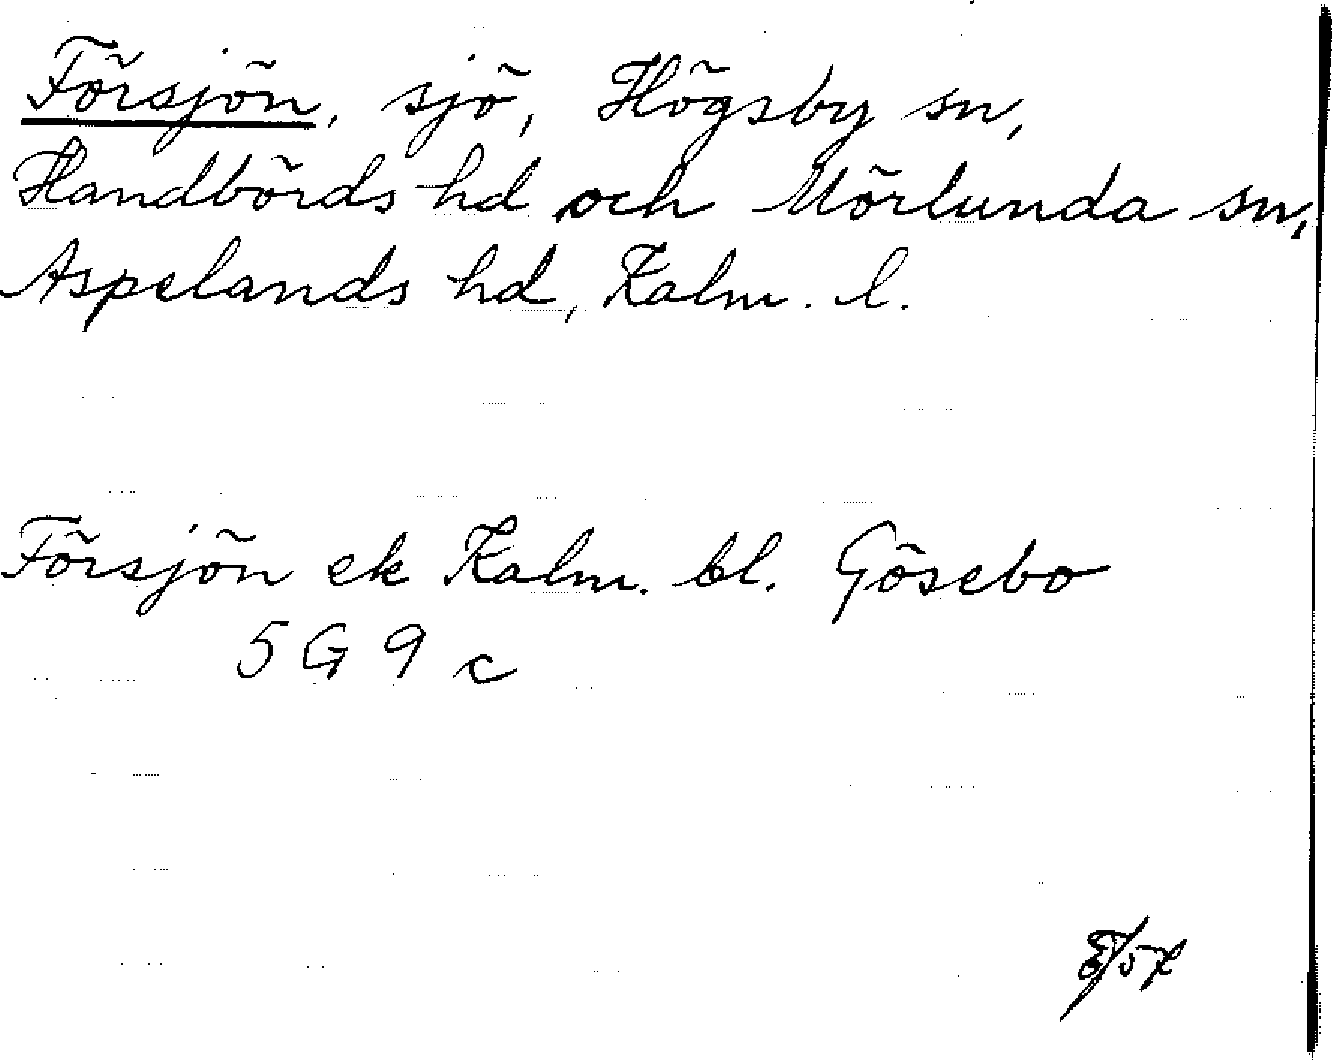 Försjön, sjö, Högsby sn,
Handbörds hd och Mörlunda sn,
Aspelands hd, Kalm. l.
Försjön ek Kalm. bl. Gösebo
5 G 9 c